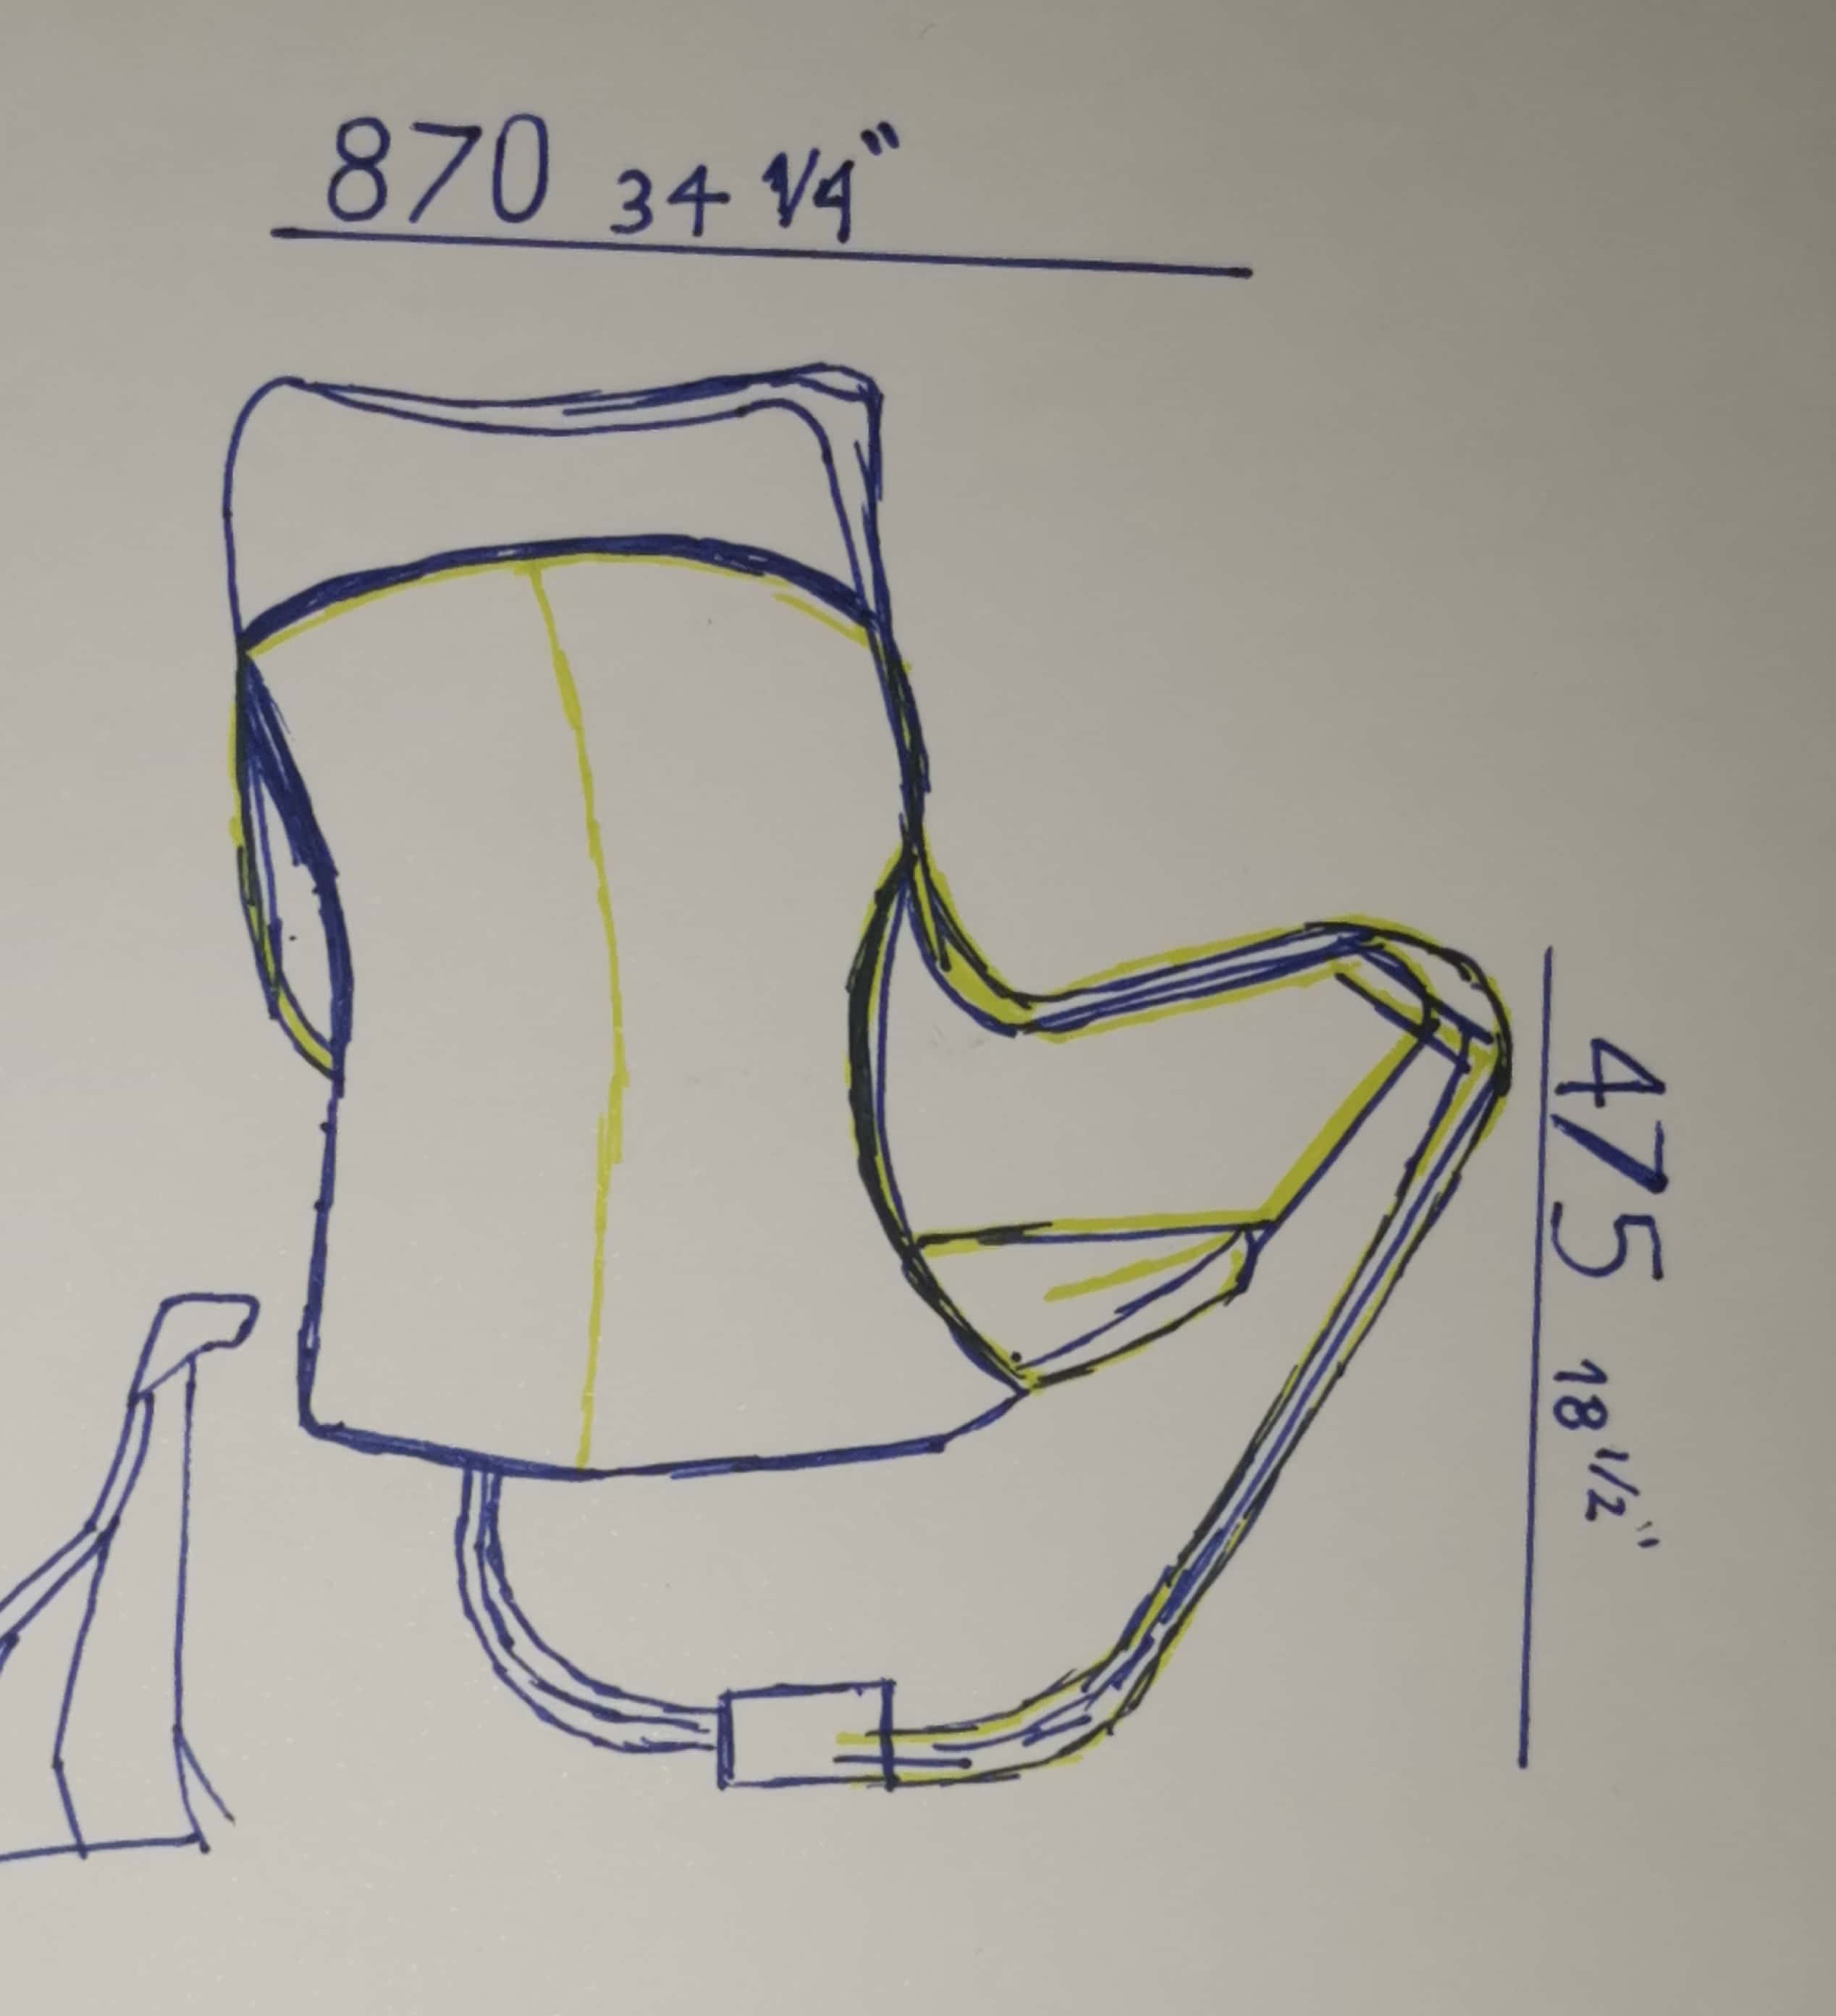 870 34 1/4"
475 18 1/2"